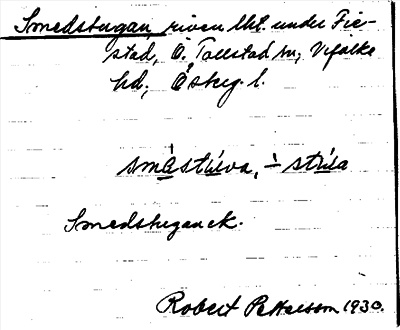 Smedstugan, riven lht. under Fie-
stad, Ö. Tollstad sn, Vifolka
hd, Östeg. l.
smästúva, ∸ stúa
Smedstugan ek.
Robert Pettersson 1930.